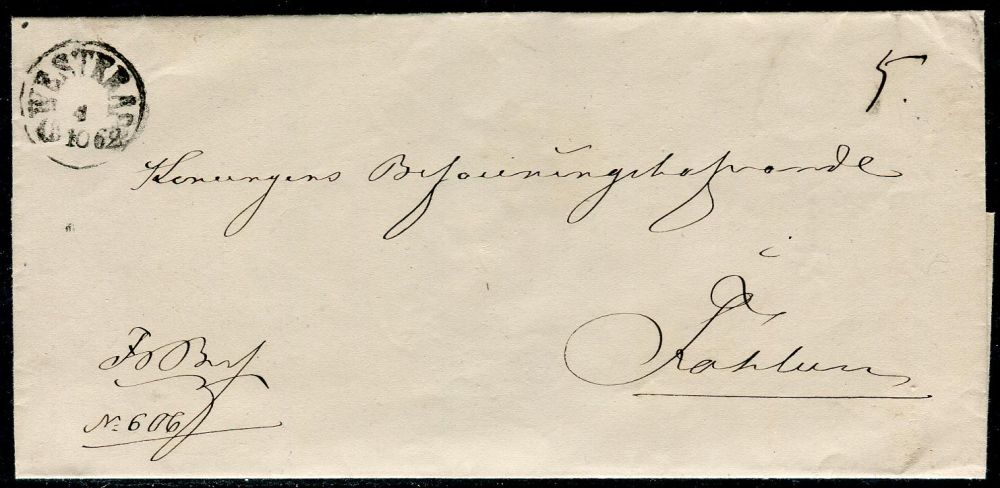 WESTERÅS
4
10 62
5.
Konungens Befallningshafvande
i
Fahlun
Fr Bref
No 606